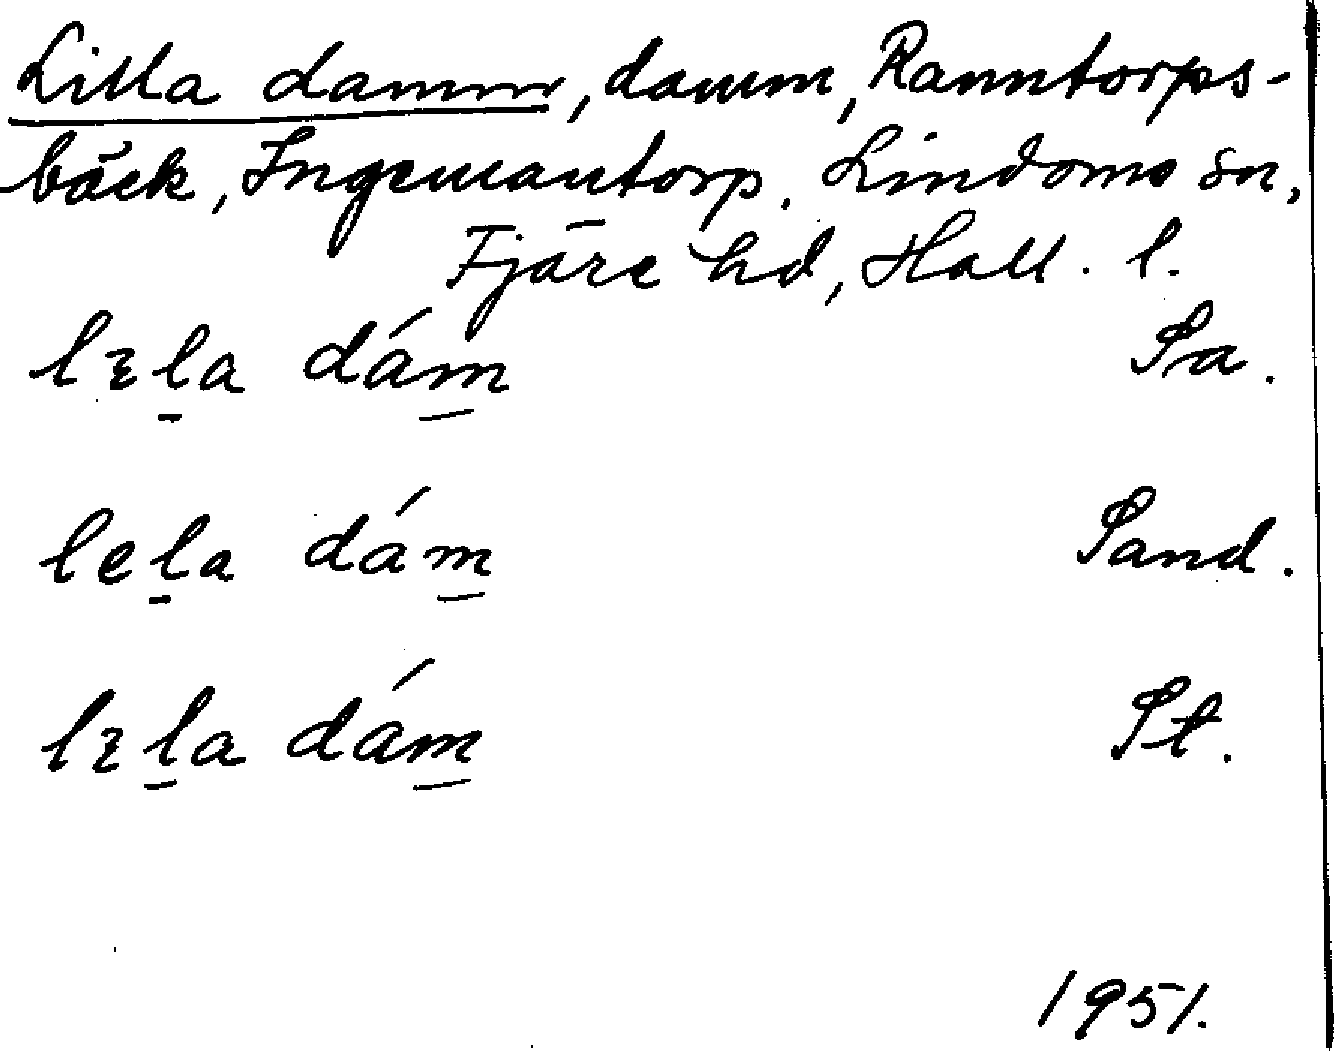 Lilla damm, damm, Ranntorps-
bäck, Ingemantorp. Lindome sn,
Fjäre hd, Hall. l.
lɪl̲a dám̲ Sa.
lel̲a dám̲ Sand.
lɪl̲a dám̲ St.
1951.